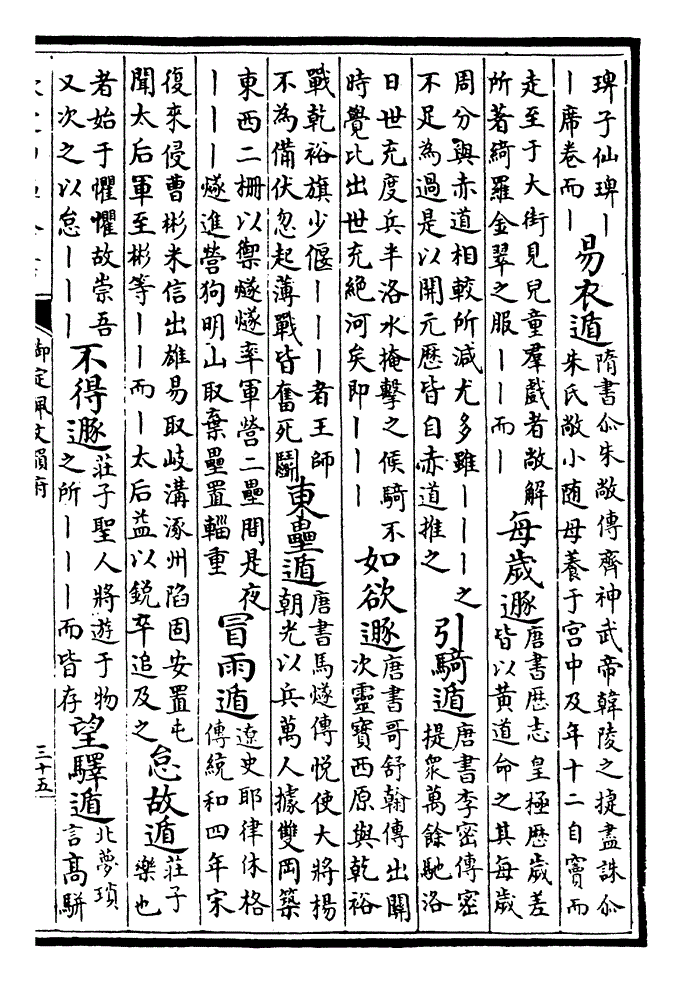 琕子仙琕丨
丨席卷而丨
易衣遁
隋書尒朱敞傳齊神武帝韓陵之捷盡誅尒
朱氏敞小随母養于宫中及年十二自竇而
走至于大街見兒童羣戲者敞解
所著綺羅金翠之服丨丨而丨
每歲遯
唐書歴志皇極歴歲差
皆以黄道命之其每歲
周分與赤道相較所減尤多雖丨丨丨之
不足為過是以開元歴皆自赤道推之
引騎遁
唐書李密傳密
提衆萬餘馳洛
日世充度兵半洛水掩擊之候騎不
時覺比出世充絶河矣即丨丨丨
如欲遯
唐書哥舒翰傳出關
次靈寶西原與乾裕
戰乾裕旗少偃丨丨丨者王師
不為備伏忽起薄戰皆奮死鬭
東壘遁
唐書馬燧傳悦使大將楊
朝光以兵萬人據雙岡築
東西二柵以禦燧燧率軍營二壘間是夜
丨丨丨燧進營狗明山取棄壘置輜重
冒雨遁
遼史耶律休格
傳統和四年宋
復來侵曹彬米信出雄易取岐溝涿州陷固安置屯
聞太后軍至彬等丨丨而丨太后益以銳卒追及之
怠故遁
莊子
樂也
者始于懼懼故崇吾
又次之以怠丨丨丨
不得遯
莊子聖人將遊于物
之所丨丨丨而皆存
望驛遁
北夢瑣
言高駢
御定佩文韻府
三十五